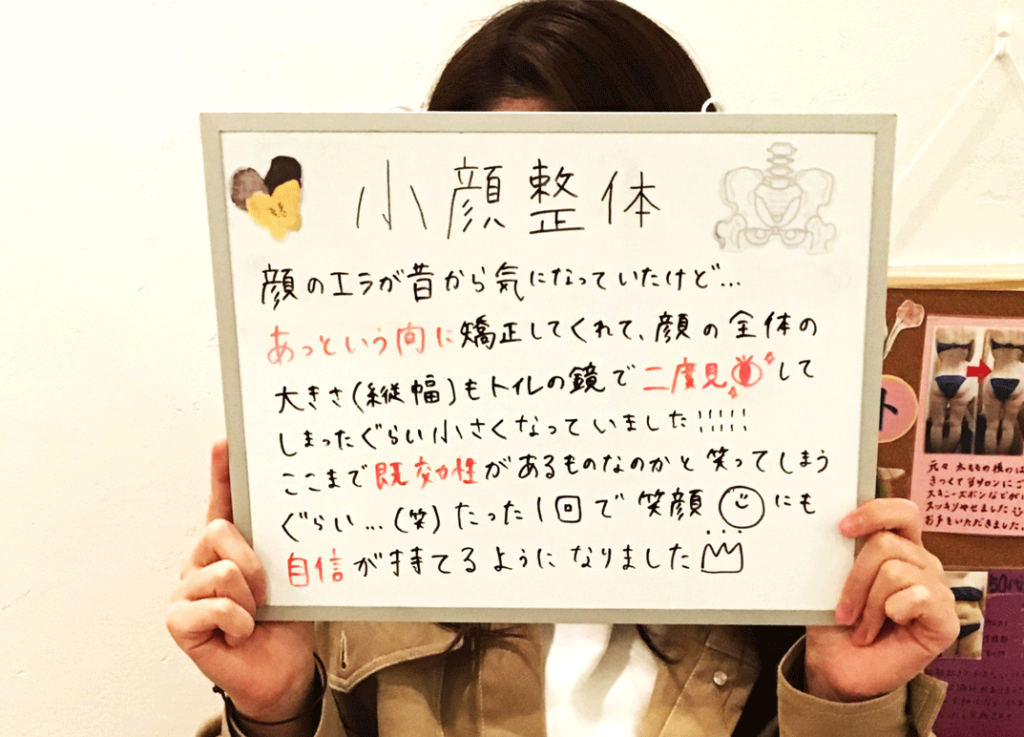 小顔整体
顔のエラが昔から気になっていたけど…
あっという間に矯正してくれて、顔の全体の
大きさ(縦幅)もトイレの鏡で二度見して
しまったぐらい小さくなっていました!!!!!
ここまで既効性があるものなのかと笑ってしまう
ぐらい…(笑)たった1回で笑顔にも
自信が持てるようになりました
ト
元々太ももの横のは
きつくて当サロンにご
スキニーズボンなどが
スッキリやせました
お声もいただきました。
50